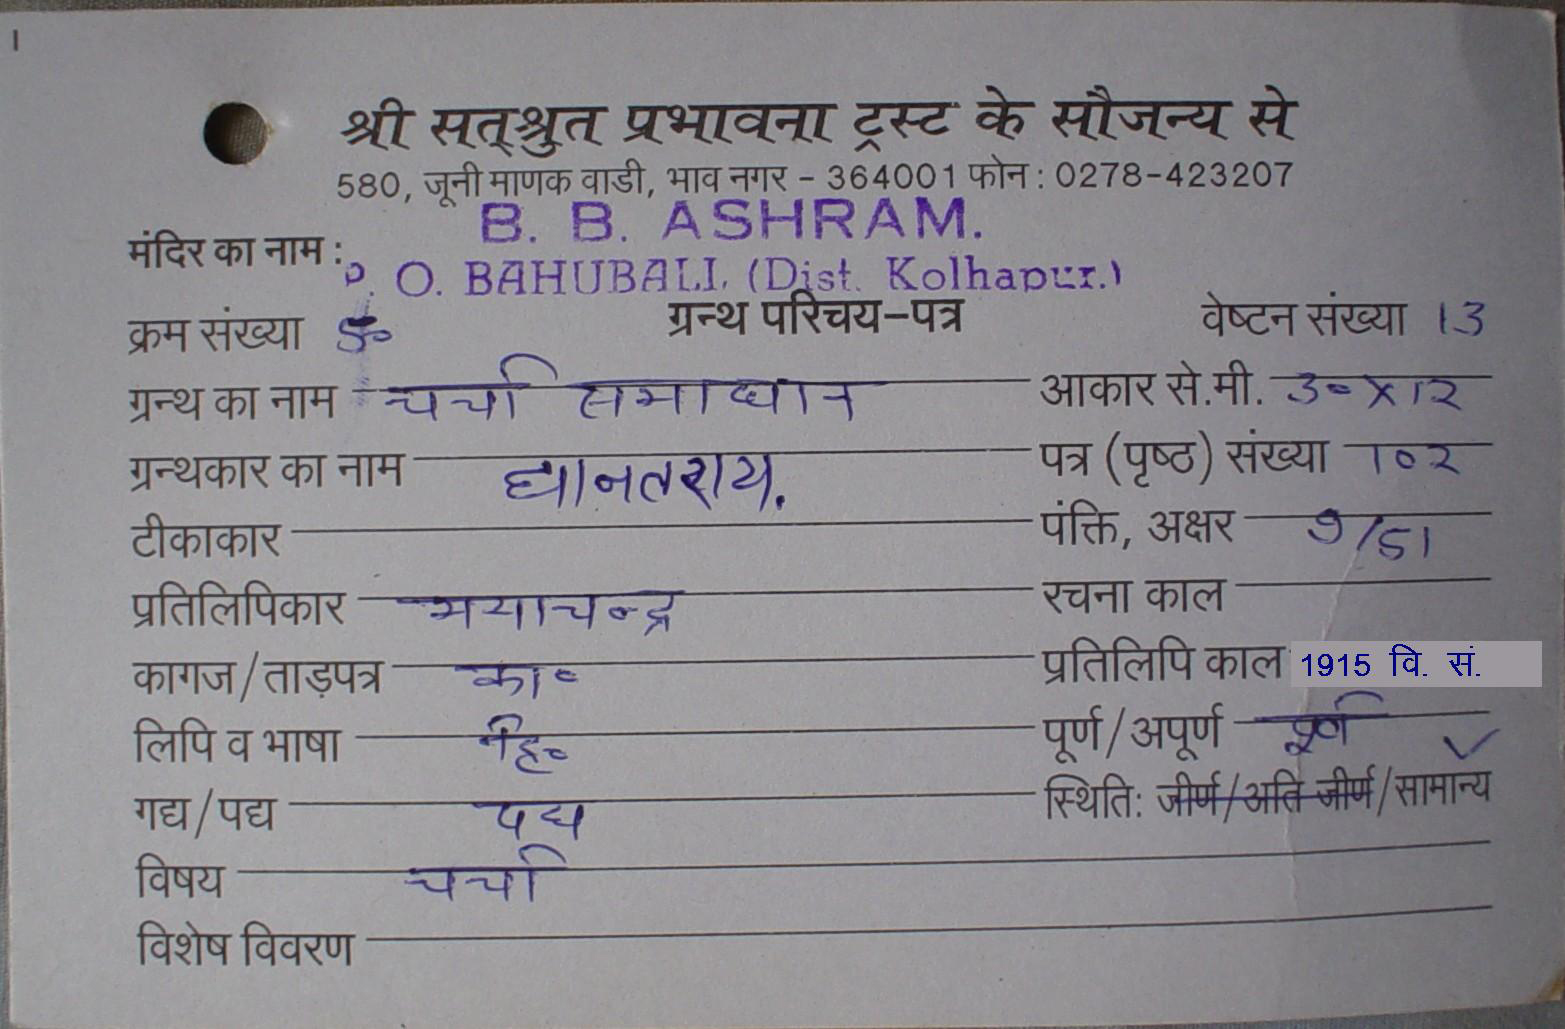 1
श्री सत्श्रुत प्रभावना ट्रस्ट के सौजन्य से
580, जूनी माणक वाडी, भाव नगर - 364001 फोन : 0278-423207
B. B. ASHRAM.
मंदिर का नाम :
P. O. BAHUBALI. (Dist. Kolhapur.)
क्रम संख्या ग्रन्थ परिचय-पत्र वेष्टन संख्या 13
ग्रन्थ का नाम चर्चा समाधान आकार से.मी. 30 X 12
ग्रन्थकार का नाम द्यानतराय. पत्र (पृष्ठ) संख्या 102
टीकाकार पंक्ति, अक्षर 9/51
प्रतिलिपिकार मयाचन्द्र रचना काल
कागज/ताड़पत्र का० प्रतिलिपि काल 1915 वि. सं.
लिपि व भाषा हि० पूर्ण/अपूर्ण पूर्ण
गद्य/पद्य पद्य स्थिति: जीर्ण/अति जीर्ण/सामान्य ✓
विषय चर्चा
विशेष विवरण